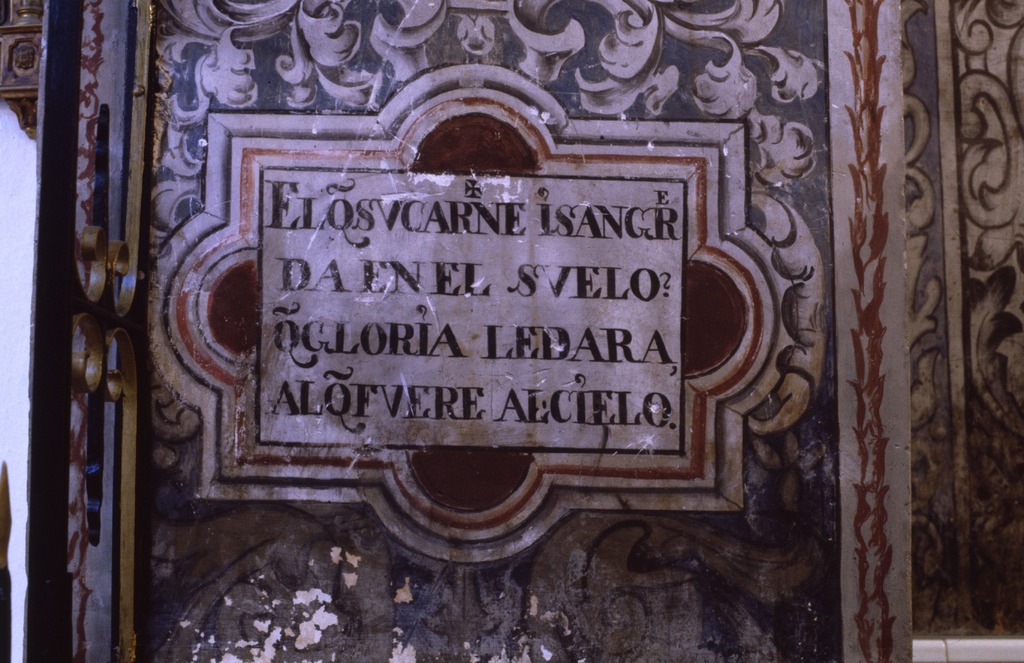 ✠
EL Q̃ SV CARNE İ SANGR̃E
DA EN EL SVELO?
Q̃ GLORİA LE DARA,
AL Q̃ FVERE AL CİELO?